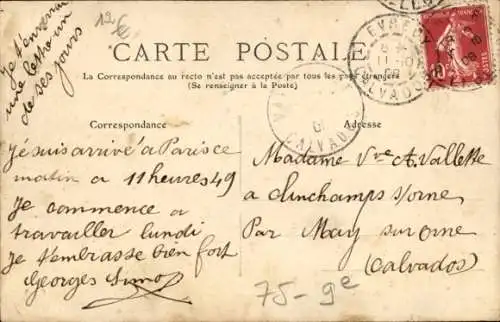 Je t'enverrai
une lettre un
de ses jours
12€
CARTE POSTALE
La Correspondance au recto n'est pas acceptée par tous les pays étrangers
(Se renseigner à la Poste)
Correspondance
Adresse
EVRECY
CALVADOS
CALVADOS
Je suis arrivé a Paris ce
matin a 11 heures 49
Je commence a
travailler lundi
Je t'embrasse bien fort
Georges Simon
Madame Vve A. Vallette
a Clinchamps s/orne
Par May sur orne
(Calvados)
75 - 9e